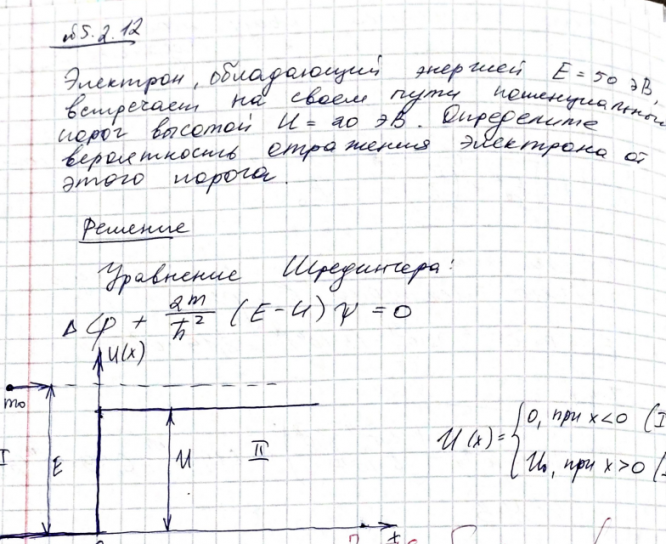 №5.2.12
Электрон, обладающий энергией E = 50 эВ,
встречает на своем пути потенциальный
порог высотой U = 20 эВ. Определите
вероятность отражения электрона от
этого порога.
Решение
Уравнение Шредингера:
Δφ + 2m/ħ² (E-U)ψ = 0
U(x)
m₀
I
E
U
II
U(x) = { 0, при x<0 (I
U₀, при x>0 (
0
x